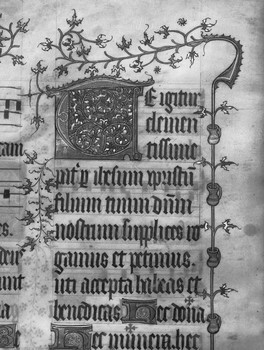 Te igitur
clemen
tissime
pat̄ p̱ ihesum xpistū
filium tuum dn̄m
nostrum supplices ro
gamus et petimus.
uti accepta habeas et
benedicas Hec dona
Hec munera. hec